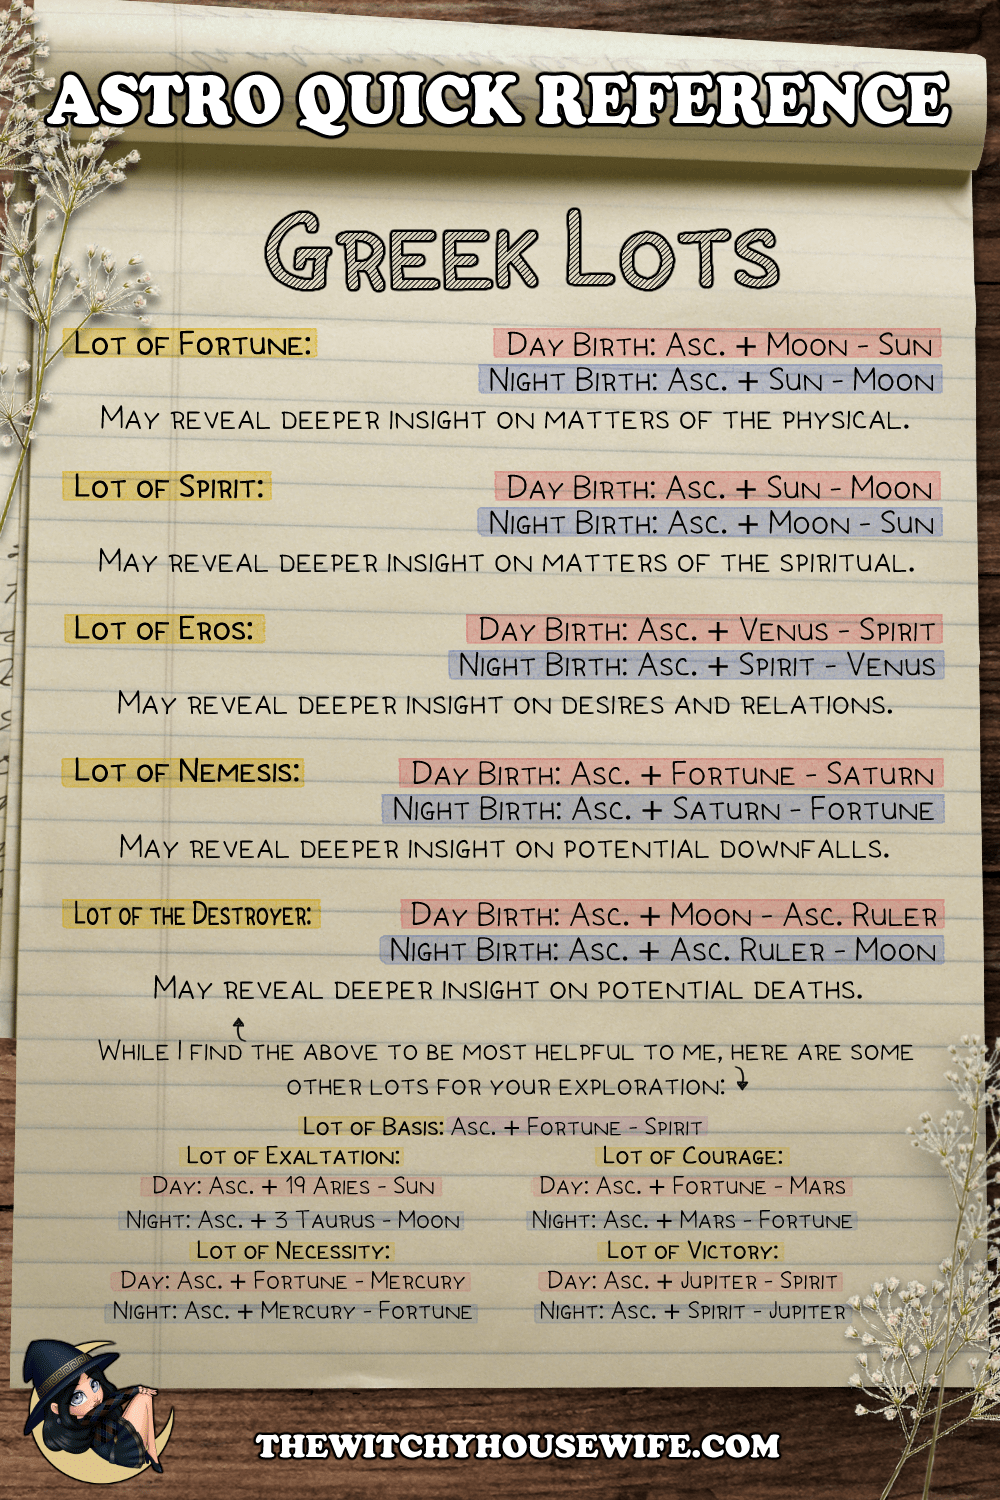 ASTRO QUICK REFERENCE
GREEK LOTS
LOT OF FORTUNE: DAY BIRTH: ASC. + MOON - SUN
NIGHT BIRTH: ASC. + SUN - MOON
MAY REVEAL DEEPER INSIGHT ON MATTERS OF THE PHYSICAL.
LOT OF SPIRIT: DAY BIRTH: ASC. + SUN - MOON
NIGHT BIRTH: ASC. + MOON - SUN
MAY REVEAL DEEPER INSIGHT ON MATTERS OF THE SPIRITUAL.
LOT OF EROS: DAY BIRTH: ASC. + VENUS - SPIRIT
NIGHT BIRTH: ASC. + SPIRIT - VENUS
MAY REVEAL DEEPER INSIGHT ON DESIRES AND RELATIONS.
LOT OF NEMESIS: DAY BIRTH: ASC. + FORTUNE - SATURN
NIGHT BIRTH: ASC. + SATURN - FORTUNE
MAY REVEAL DEEPER INSIGHT ON POTENTIAL DOWNFALLS.
LOT OF THE DESTROYER: DAY BIRTH: ASC. + MOON - ASC. RULER
NIGHT BIRTH: ASC. + ASC. RULER - MOON
MAY REVEAL DEEPER INSIGHT ON POTENTIAL DEATHS.
WHILE I FIND THE ABOVE TO BE MOST HELPFUL TO ME, HERE ARE SOME
OTHER LOTS FOR YOUR EXPLORATION:
LOT OF BASIS: ASC. + FORTUNE - SPIRIT
LOT OF EXALTATION:
DAY: ASC. + 19 ARIES - SUN
NIGHT: ASC. + 3 TAURUS - MOON
LOT OF COURAGE:
DAY: ASC. + FORTUNE - MARS
NIGHT: ASC. + MARS - FORTUNE
LOT OF NECESSITY:
DAY: ASC. + FORTUNE - MERCURY
NIGHT: ASC. + MERCURY - FORTUNE
LOT OF VICTORY:
DAY: ASC. + JUPITER - SPIRIT
NIGHT: ASC. + SPIRIT - JUPITER
THEWITCHYHOUSEWIFE.COM